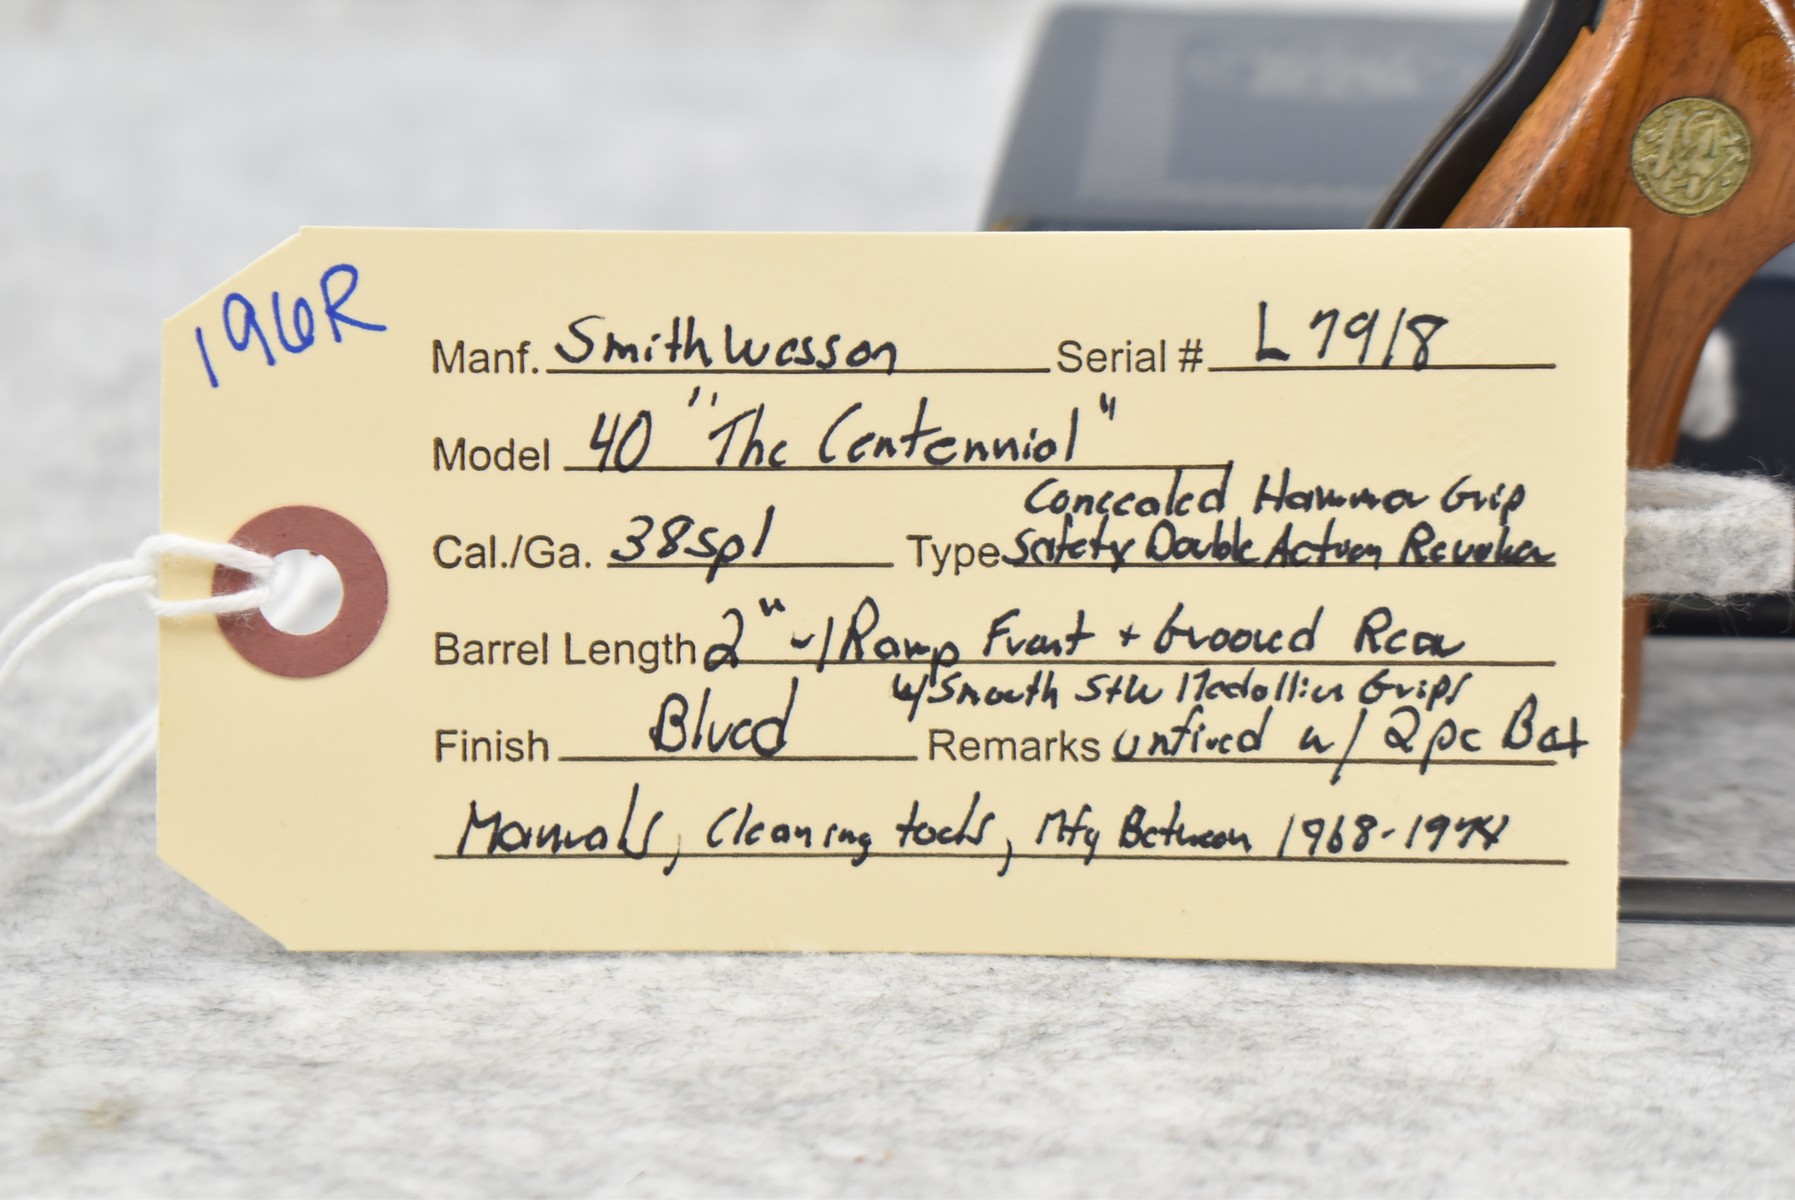 196R
Manf. Smith Wesson Serial # L7918
Model 40 "The Centennial"
Concealed Hammer Grip
Cal./Ga. 38 spl Type Safety Double Action Revolver
Barrel Length 2" w/ Ramp Front + Grooved Rear
w/ Smooth S+W Medallion Grips
Finish Blued Remarks unfired w/ 2pc Box
Manuals, Cleaning tools, Mfg Between 1968-1974